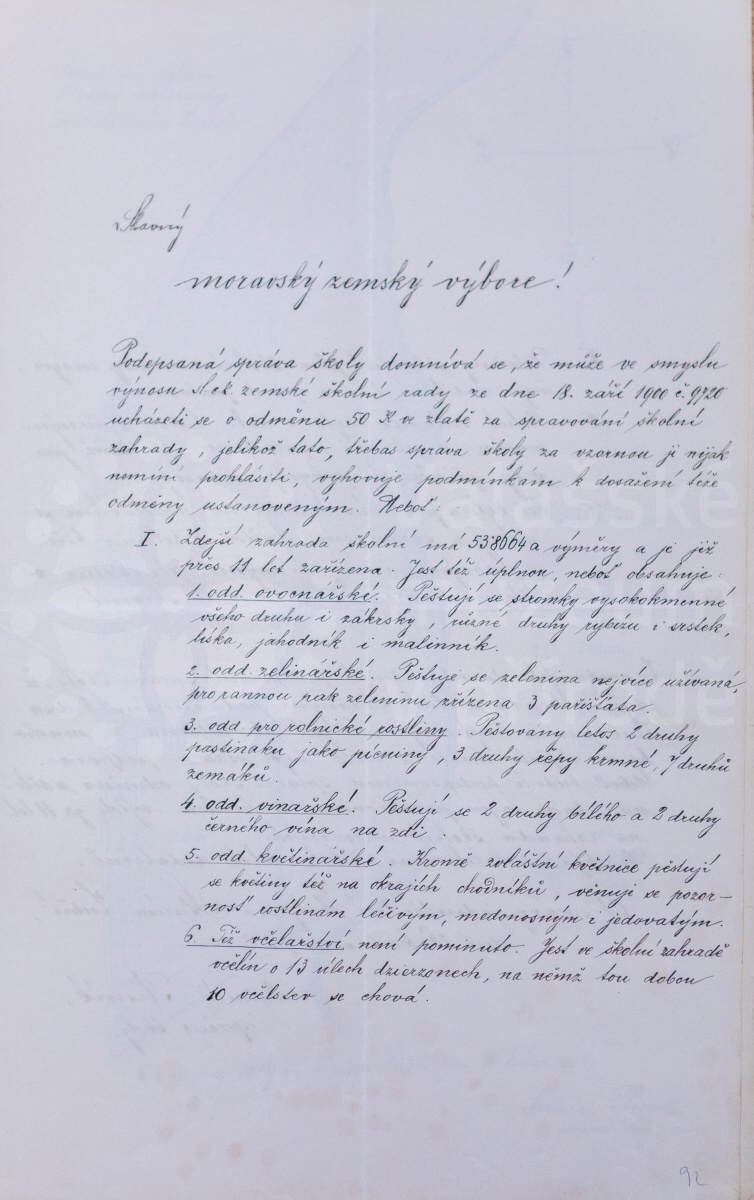 Slavný
moravský zemský výbore!
Podepsaná správa školy domnívá se, že může ve smyslu
výnosu sl. c. k. zemské školní rady ze dne 18. září 1900 č. 9720
ucházeti se o odměnu 50 K ve zlatě za spravování školní
zahrady, jelikož tato, třebas správa školy za vzornou ji nijak
nemíní prohlásiti, vyhovuje podmínkám k dosažení téže
odměny ustanoveným. Neboť:
I. Zdejší zahrada školní má 5·38664 a výměry a je již
přes 11 let zařízena. Jest též úplnou, neboť obsahuje:
1. odd. ovocnářské. Pěstují se stromky vysokokmenné
všeho druhu i zákrsky, různé druhy rybízu i srstek,
líska, jahodník i malinník.
2. odd. zelinářské. Pěstuje se zelenina nejvíce užívaná,
pro rannou pak zeleninu zřízena 3 pařišťata.
3. odd pro rolnické rostliny. Pěstovany letos 2 druhy
pastinaku jako pícniny, 3 druhy řepy krmné, 7 druhů
zemáků.
4. odd. vinařské. Pěstují se 2 druhy bílého a 2 druhy
černého vína na zdi.
5. odd. květinářské. Kromě zvláštní květnice pěstují
se květiny též na okrajích chodníků, věnuje se pozor-
nosť rostlinám léčivým, medonosným i jedovatým.
6. Též včelařství není pominuto. Jest ve školní zahradě
včelín o 13 úlech dzierzonech, na němž tou dobou
10 včelstev se chová.
92